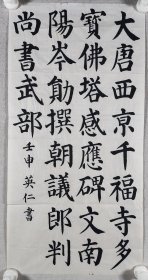 大唐西京千福寺多
寶佛塔感應碑文南
陽岑勛撰朝議郎判
尚書武部
壬申 英仁書